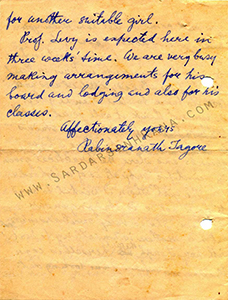 for another suitable girl.
Prof. Levy is expected here in
three weeks' time. We are very busy
making arrangements for his
board and lodging and also for his
classes.
Affectionately yours
Rabindranath Tagore